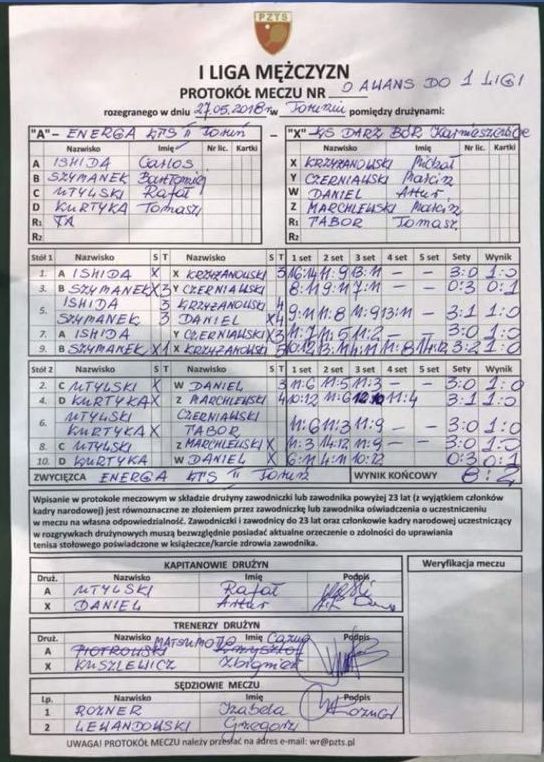 PZTS
I LIGA MĘŻCZYZN
PROTOKÓŁ MECZU NR O AWANS DO 1 LIGI
rozegranego w dniu 27.05.2018r w Toruniu pomiędzy drużynami:
"A"- ENERGA KTS II Toruń "X"- KS DARZ BÓR Karnieszewice
Nazwisko Imię Nr lic. Kartki Nazwisko Imię Nr lic. Kartki
A ISHIDA Carlos X KRZYŻANOWSKI Michał
B SZYMANEK Bartłomiej Y CZERNIAWSKI Marcin
C UTYLSKI Rafał W DANIEL Artur
D KURTYKA Tomasz Z MARCHLEWSKI Marcin
R1 R1 TABOR Tomasz
R2 R2
Stół 1 Nazwisko S T Nazwisko S T 1 set 2 set 3 set 4 set 5 set Sety Wynik
1. A ISHIDA X X KRZYŻANOWSKI 3 16:14 11:9 13:11 — — 3:0 1:0
3. B SZYMANEK X 3 Y CZERNIAWSKI 8:11 9:11 7:11 — — 0:3 0:1
ISHIDA 3 KRZYŻANOWSKI 4
5. SZYMANEK 3 DANIEL X 4 9:11 11:8 11:9 13:11 — 3:1 1:0
7. A ISHIDA X Y CZERNIAWSKI X 3 11:7 11:5 11:2 — — 3:0 1:0
9. B SZYMANEK X 1 X KRZYŻANOWSKI 5 10:12 13:11 4:11 11:8 14:12 3:2 1:0
Stół 2 Nazwisko S T Nazwisko S T 1 set 2 set 3 set 4 set 5 set Sety Wynik
2. C UTYLSKI X W DANIEL 3 11:6 11:5 11:3 — — 3:0 1:0
4. D KURTYKA X Z MARCHLEWSKI 4 10:12 11:6 11:4 3:1 1:0
UTYLSKI CZERNIAWSKI
6. KURTYKA X TABOR 11:6 11:3 11:9 — — 3:0 1:0
8. C UTYLSKI Z MARCHLEWSKI X 11:3 14:12 11:9 — — 3:0 1:0
10. D KURTYKA W DANIEL X 6:11 4:11 10:12 0:3 0:1
ZWYCIĘZCA ENERGA KTS II Toruń WYNIK KOŃCOWY 8:2
Wpisanie w protokole meczowym w składzie drużyny zawodniczki lub zawodnika powyżej 23 lat (z wyjątkiem członków
kadry narodowej) jest równoznaczne ze złożeniem przez zawodniczkę lub zawodnika oświadczenia o uczestniczeniu
w meczu na własna odpowiedzialność. Zawodniczki i zawodnicy do 23 lat oraz członkowie kadry narodowej uczestniczący
w rozgrywkach drużynowych muszą bezwzględnie posiadać aktualne orzeczenie o zdolności do uprawiania
tenisa stołowego poświadczone w książeczce/karcie zdrowia zawodnika.
KAPITANOWIE DRUŻYN Weryfikacja meczu
Druż. Nazwisko Imię Podpis
A UTYLSKI Rafał
X DANIEL Artur
TRENERZY DRUŻYN
Druż. Nazwisko MATSUMOTO Imię Cazuo Podpis
A PIOTROWSKI Krzysztof
X KUSZLEWICZ Zbigniew
SĘDZIOWIE MECZU
Lp. Nazwisko Imię Podpis
1 ROZNER Izabela
2 LEWANDOWSKI Grzegorz
UWAGA! PROTOKÓŁ MECZU należy przesłać na adres e-mail: wr@pzts.pl